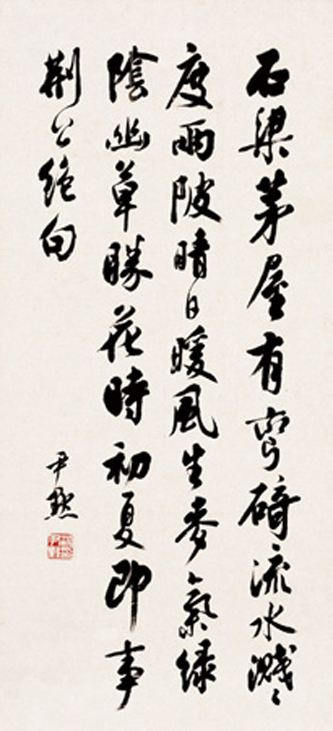 石梁茅屋有彎碕流水濺〻
度兩陂晴日暖風生麥氣綠
陰幽草勝花時初夏即事
荊公絕句
尹默